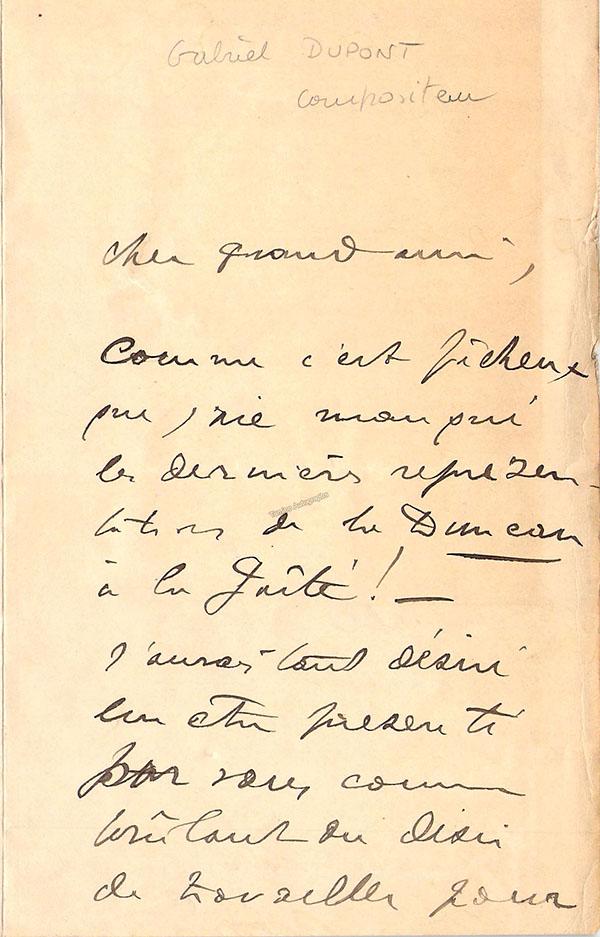 Gabriel DUPONT
compositeur
cher grand ami,
Comme c'est fâcheux
que j'aie manqué
les dernières représen-
tations de la Duncan
à la Gaîté! —
J'aurais tant désiré
lui être présenté
par vous comme
brûlant du désir
de travailler pour
Tamino Autographs